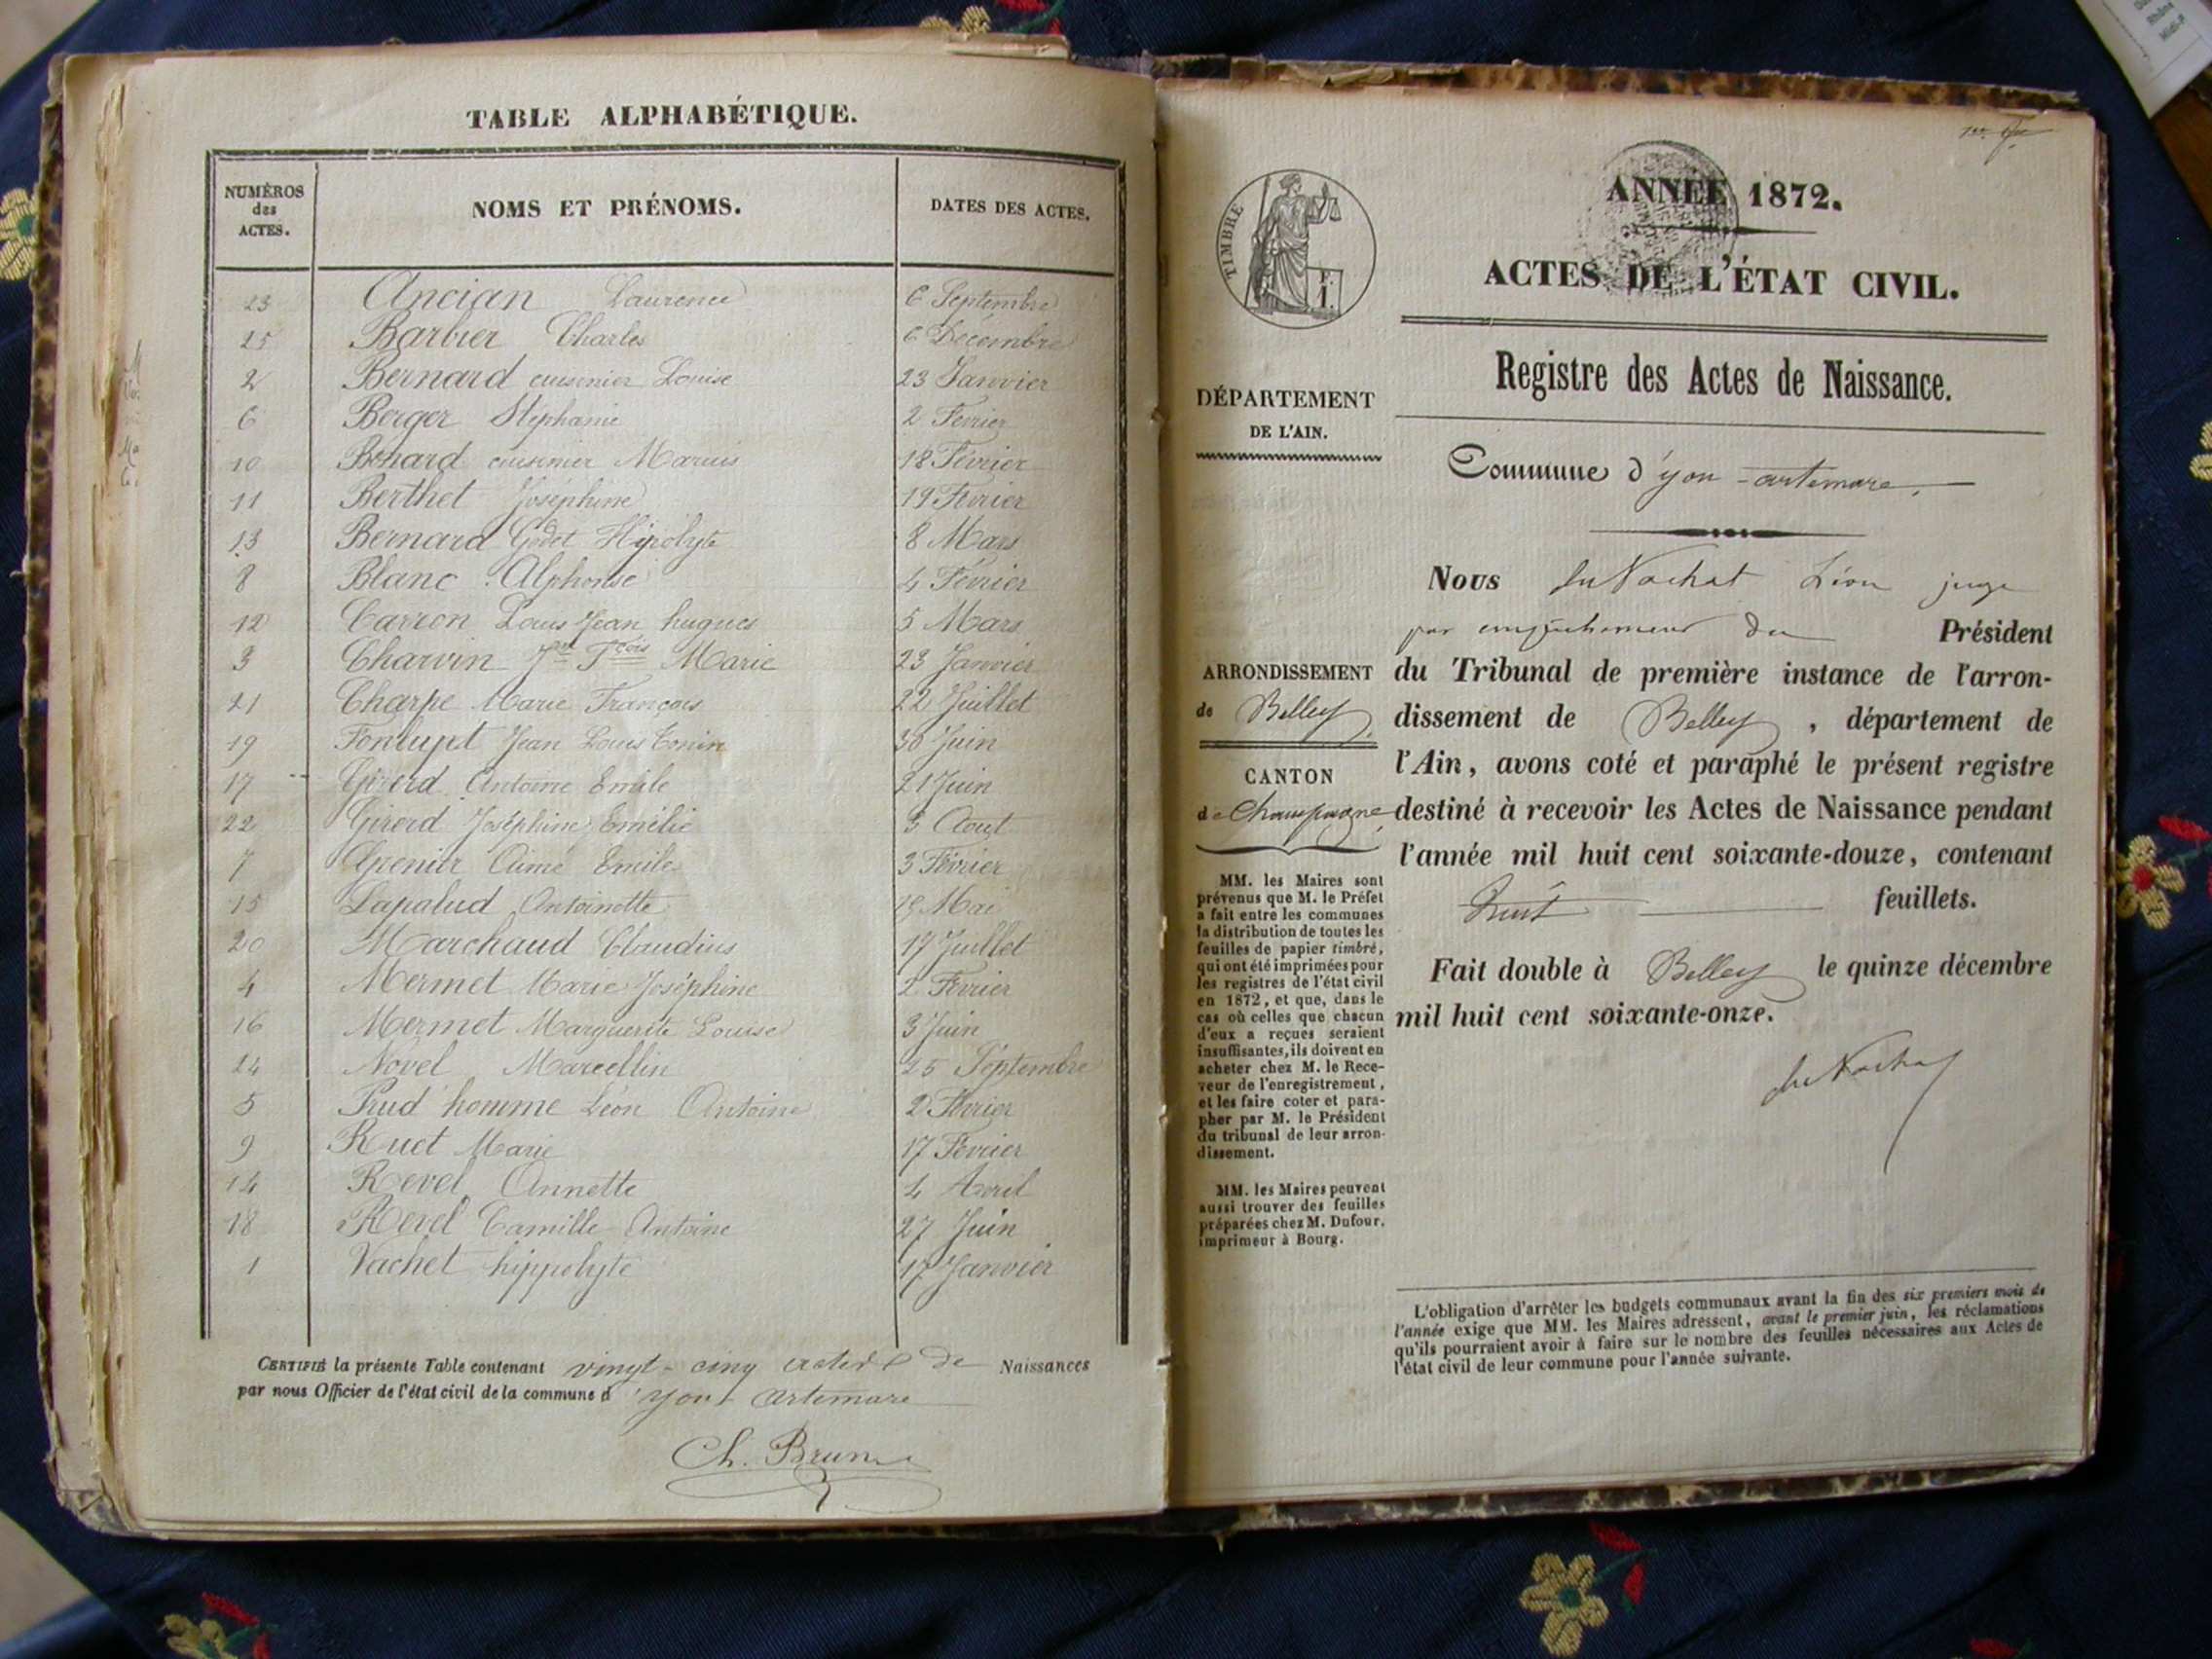 TABLE ALPHABÉTIQUE.
NUMÉROS des ACTES. NOMS ET PRÉNOMS. DATES DES ACTES.
23 Ancian Laurence 6 Septembre
25 Barbier Charles 6 Décembre
2 Bernard cuisinier Louise 23 Janvier
6 Berger Stéphanie 2 Février
10 Bonard cuisinier Marius 18 Février
11 Berthet Joséphine 19 Février
13 Bernard Godet Hipolyte 8 Mars
8 Blanc Alphonse 4 Février
12 Carron Louis Jean hugues 5 Mars
3 Charvin Jn Fçois Marie 23 Janvier
21 Charpe Marie François 22 Juillet
19 Fontupt Jean Louis Tonin 30 Juin
17 Girerd Antoine Emile 21 Juin
22 Girerd Joséphine Emélie 3 Aout
7 Grenier Aimé Emile 3 Février
15 Lapalud Antoinette 19 Mai
20 Marchaud Claudius 17 Juillet
4 Mermet Marie Joséphine 2 Février
16 Mermet Marguerite Louise 3 Juin
24 Novel Marcellin 25 Septembre
5 Prud'homme Léon Antoine 2 Février
9 Ruet Marie 17 Février
14 Revel Annette 4 Avril
18 Revel Camille Antoine 27 Juin
1 Vachet hippolyte 17 Janvier
CERTIFIÉ la présente Table contenant vingt-cinq actes de Naissances
par nous Officier de l'état civil de la commune d'yon-artemare
Ch. Brun
TIMBRE
ANNÉE 1872.
ACTES DE L'ÉTAT CIVIL.
Registre des Actes de Naissance.
DÉPARTEMENT
DE L'AIN.
Commune d'yon-artemare.
ARRONDISSEMENT
de Belley
CANTON
de Champagne
MM. les Maires sont
prévenus que M. le Préfet
a fait entre les communes
la distribution de toutes les
feuilles de papier timbré,
qui ont été imprimées pour
les registres de l'état civil
en 1872, et que, dans le
cas où celles que chacun
d'eux a reçues seraient
insuffisantes, ils doivent en
acheter chez M. le Rece-
veur de l'enregistrement,
et les faire coter et para-
pher par M. le Président
du tribunal de leur arron-
dissement.
MM. les Maires peuvent
aussi trouver des feuilles
préparées chez M. Dufour,
imprimeur à Bourg.
Nous du Nachat Léon juge
par empêchement du Président
du Tribunal de première instance de l'arron-
dissement de Belley, département de
l'Ain, avons coté et paraphé le présent registre
destiné à recevoir les Actes de Naissance pendant
l'année mil huit cent soixante-douze, contenant
huit feuillets.
Fait double à Belley le quinze décembre
mil huit cent soixante-onze.
du Nachat
L'obligation d'arrêter les budgets communaux avant la fin des six premiers mois de
l'année exige que MM. les Maires adressent, avant le premier juin, les réclamations
qu'ils pourraient avoir à faire sur le nombre des feuilles nécessaires aux Actes de
l'état civil de leur commune pour l'année suivante.